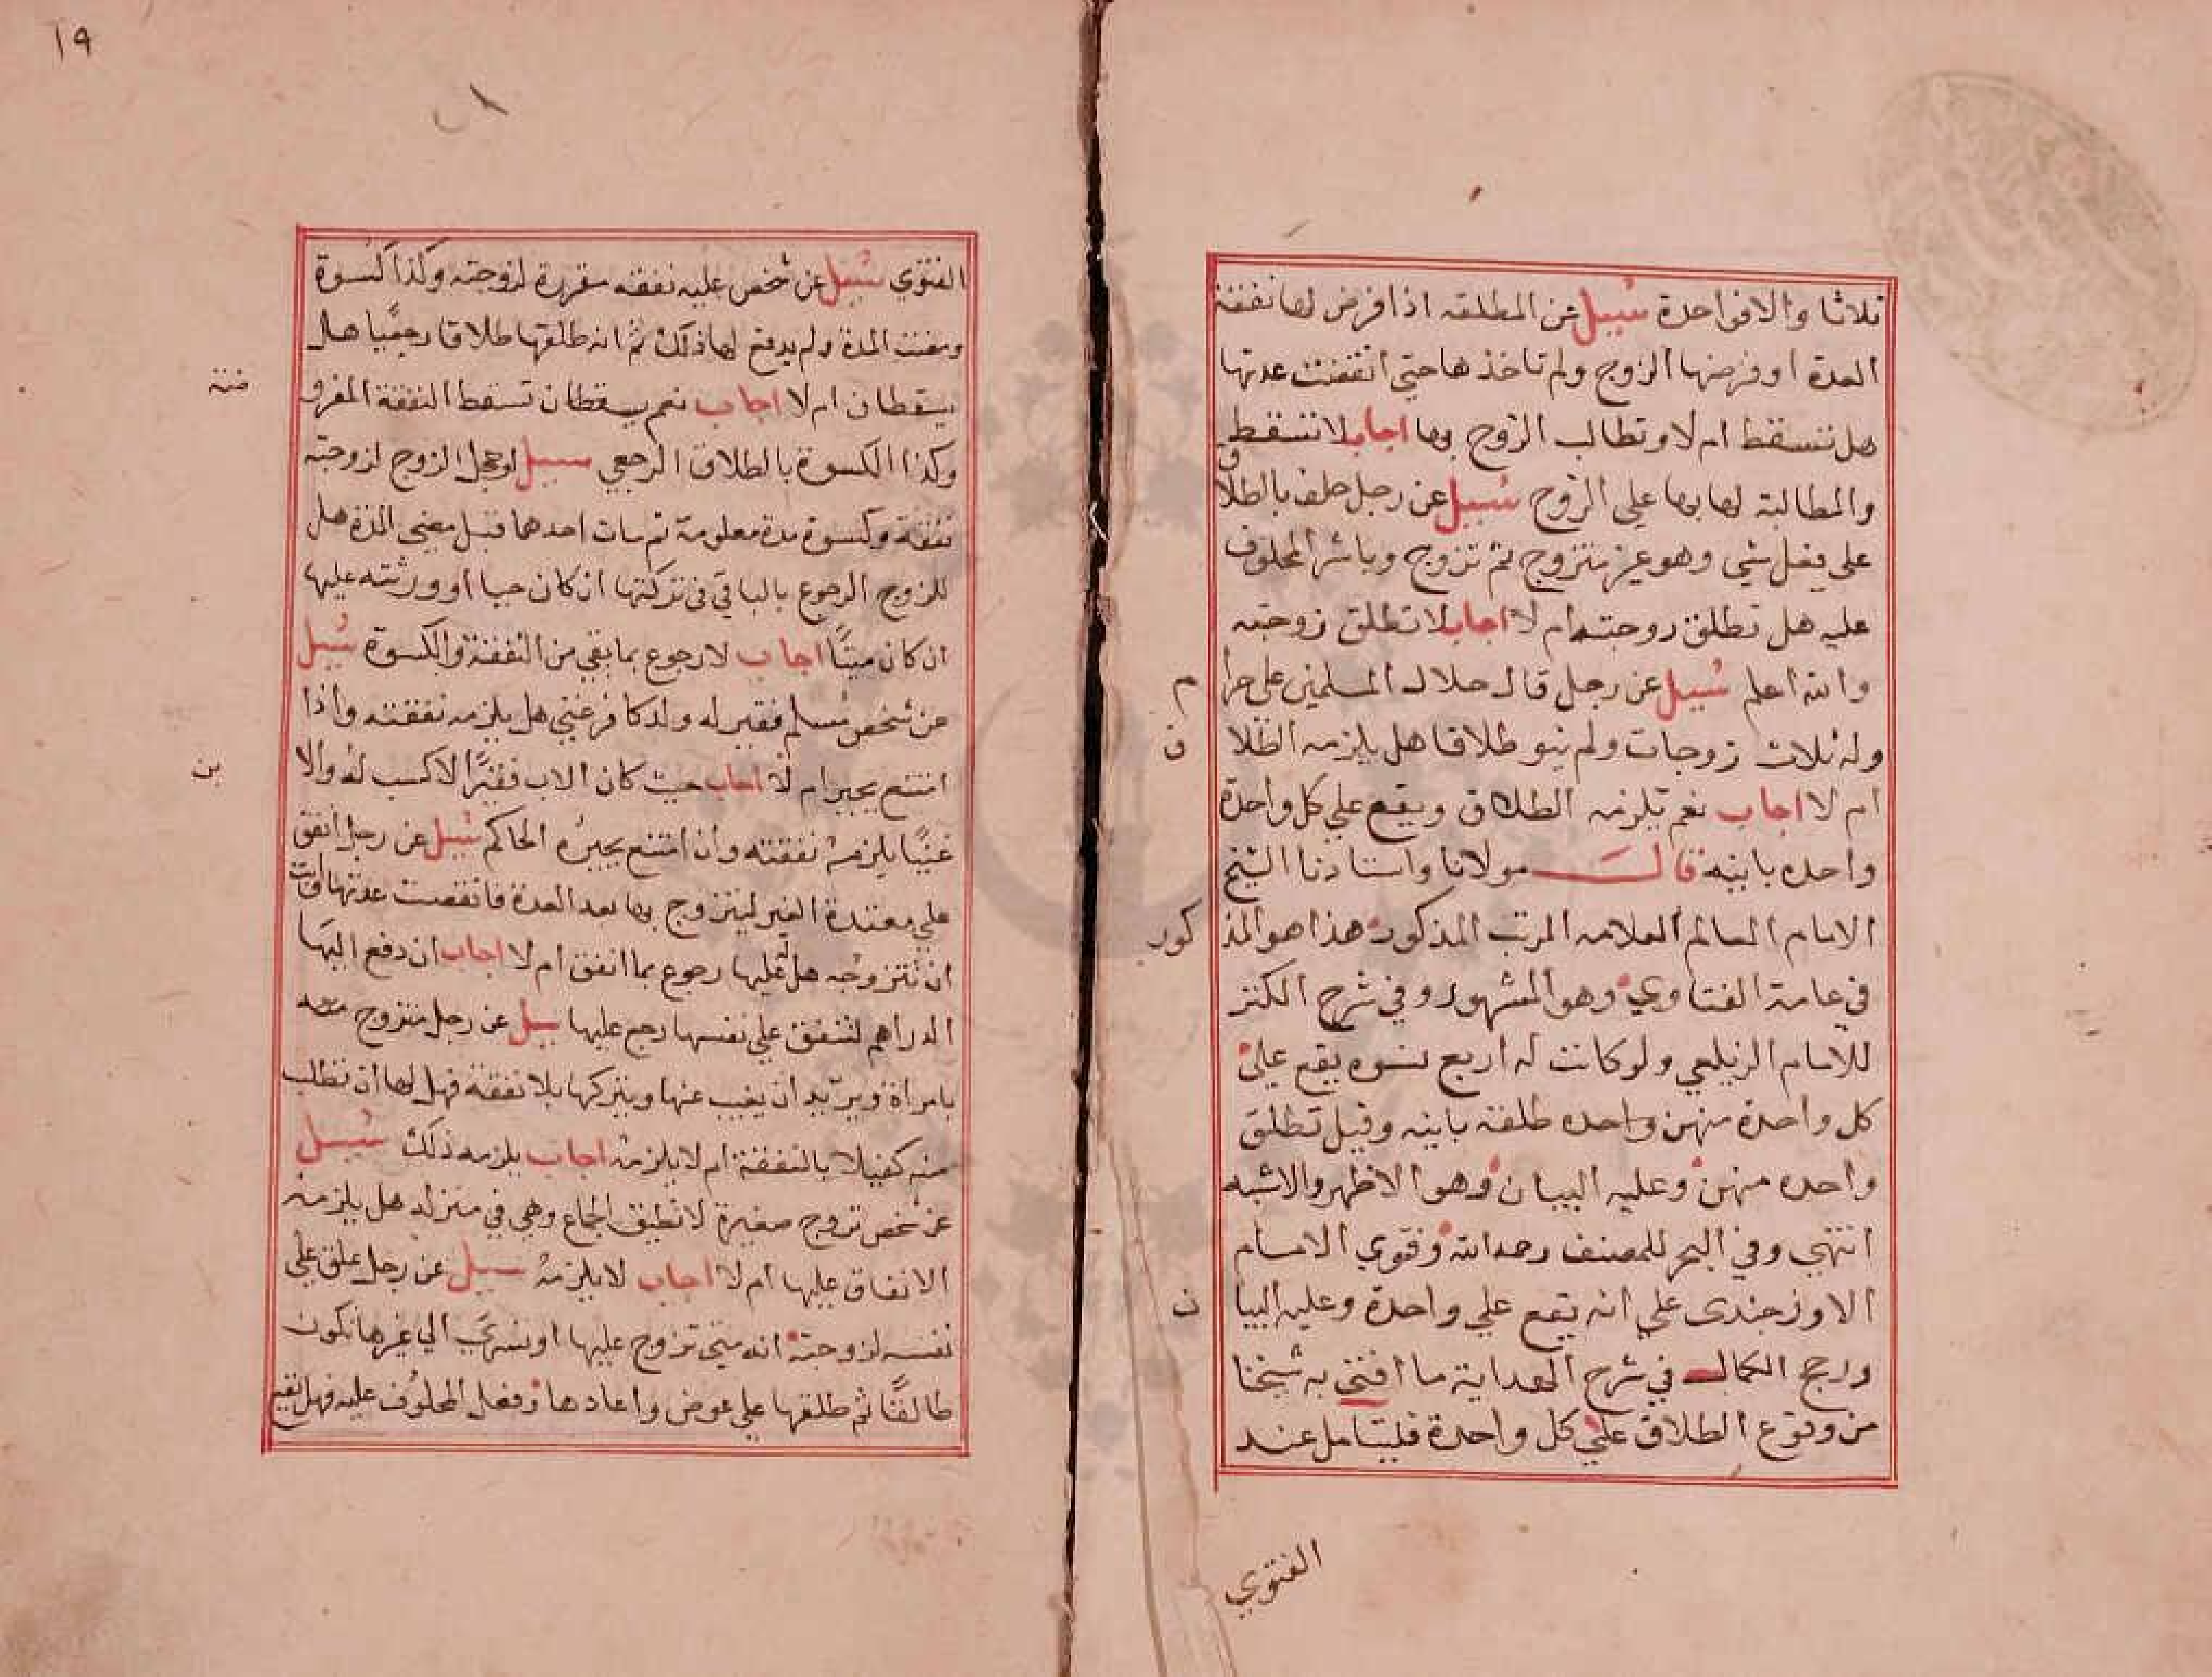 ثلاثا والا فواحدة سئيل عن المطلقه اذا فرض لها نفقة
العدة او فرضها الزوج ولم تاخذها حتي انقضت عدتها
هل تسقط ام لا وتطالب الزوج بها اجاب لا تسقط
والمطالبة لها بها علي الزوج سئيل عن رجل حلف بالطلاق
علي فعل شي وهو غير متزوج ثم تزوج وباشر المحلوف
عليه هل تطلق زوجته ام لا اجاب لا تطلق زوجته
والله اعلم سئيل عن رجل قال حلال المسلمين علي حرام
وله ثلاث زوجات ولم ينو طلاقا هل يلزمه الطلاق
ام لا اجاب نعم يلزمه الطلاق ويقع علي كل واحدة
واحده باينه قال مولانا واستادنا الشيخ
الامام العالم العلامه المرتب المذكور هذا هو المذكور
في عامة الفتاوي وهو المشهور وفي شرح الكنز
للامام الزيلعي ولو كانت له اربع نسوه يقع علي
كل واحدة منهن واحده طلقه باينه وقيل تطلق
واحده منهن وعليه البيان وهو الاظهر والاشبه
انتهي وفي البحر للمصنف رحمه الله وفتوي الامام
الاوزجندى علي انه يقع علي واحدة وعليه البيان
ورجح الكمال في شرح الهداية ما افتي به شيخنا
من وقوع الطلاق علي كل واحدة فليتامل عند
الفتوي
١٩
الفتوي سئيل عن شخص عليه نفقه مقررة لزوجته وكذا كسوة
ومضت المدة ولم يدفع لها ذلك ثم انه طلقها طلاقا رجعيا هل
يسقطان ام لا اجاب نعم يسقطان تسقط النفقة المفروضة
وكذا الكسوة بالطلاق الرجعي سئيل لو عجل الزوج لزوجته
نفقة وكسوة مدة معلومة ثم مات احدهما قبل مضي المدة هل
للزوج الرجوع بالباقي في تركتها ان كان حيا او ورثته عليها
ان كان ميتًا اجاب لا رجوع بما بقي من النفقة والكسوة سئيل
عن شخص مسلم فقير له ولد كافر غني هل يلزمه نفقته واذا
امتنع يجبر ام لا اجاب حيث كان الاب فقيرًا لا كسب له والابن
غنيًا يلزمه نفقته وان امتنع يجبره الحاكم سئيل عن رجل انفق
علي معتدة الغير ليتزوج بها بعد العدة فانقضت عدتها وابت
ان تتزوجه هل له عليها رجوع بما انفق ام لا اجاب ان دفع اليها
الدراهم لتنفق علي نفسها رجع عليها سيل عن رجل متزوج
بامراة ويريد ان يغيب عنها ويتركها بلا نفقة فهل لها ان تطلب
منه كفيلا بالنفقة ام لا يلزمه اجاب يلزمه ذلك سئيل
عن شخص تزوج صغيرة لا تطيق الجماع وهي في منزله هل يلزمه
الانفاق عليها ام لا اجاب لا يلزمه سئيل عن رجل علق علي
نفسه لزوجته انه متي تزوج عليها او تسري الي غيرها تكون
طالقًا ثم طلقها علي عوض واعادها وفعل المحلوف عليه فهل يقع